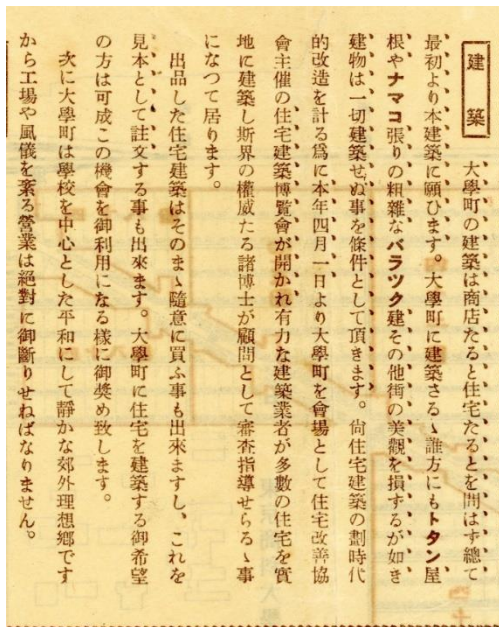 建築
大學町の建築は商店たると住宅たるとを問はず總て
最初より本建築に願ひます。大學町に建築さるゝ誰方にもトタン屋
根やナマコ張りの粗雜なバラツク建その他街の美觀を損するが如き
建物は一切建築せぬ事を條件として頂きます。尙住宅建築の劃時代
的改造を計る爲に本年四月一日より大學町を會場として住宅改善協
會主催の住宅建築博覽會が開かれ有力な建築業者が多數の住宅を實
地に建築し斯界の權威たる諸博士が顧問として審査指導せらるゝ事
になつて居ります。
出品した住宅建築はそのまゝ隨意に買ふ事も出來ますし、これを
見本として註文する事も出來ます。大學町に住宅を建築する御希望
の方は可成この機會を御利用になる樣に御奬め致します。
次に大學町は學校を中心とした平和にして靜かな郊外理想鄕です
から工場や風儀を紊る營業は絕對に御斷りせねばなりません。